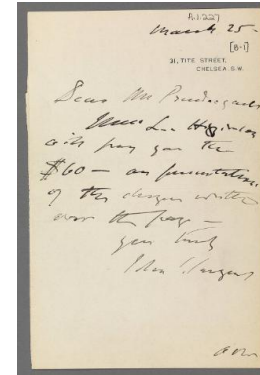 A.1.227
March 25 -
[B-1]
31, TITE STREET,
CHELSEA. S.W.
Dear Mr Prendergast
Lee Higginson
will pay you the
$60 – on presentation
of the cheque written
over the page –
yours truly
John S. Sargent